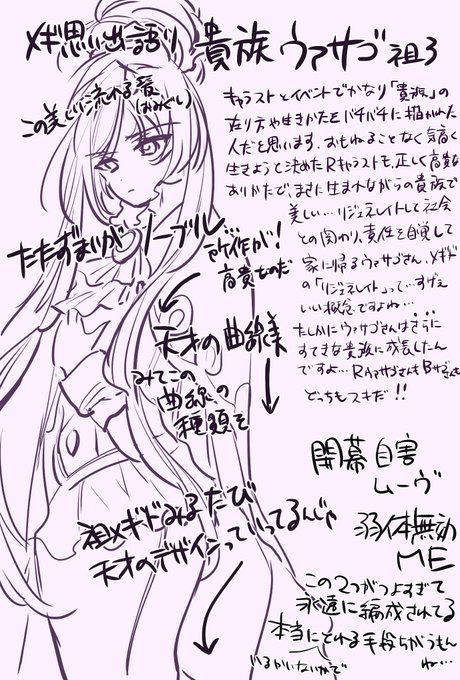 メギド思い出語り 貴族 ウァサゴ 祖3
この美しい流れる髪
(おみぐし)
キャラストとイベントでかなり「貴族」の
在り方や生きかたをバチバチに描かれた
人だと思います。おもねることなく気高く
生きようと決めたRキャラストも、正しく高貴な
ありかたで、まさに生まれながらの貴族で
美しい…リジェネレイトして社会
との関わり、責任を自覚して
家に帰るウァサゴさん、メギド
の「リジェネレイト」って…すげえ
いい概念ですよね…
たしかにウァサゴさんはさらに
すてきな貴族に成長したん
ですよ…RウァサゴさんもBサゴさんも
どっちもスキだ!!
たたずまいがノーブル…
所作が!
高貴なのだ
天才の曲線美
みてこの
曲線の
種類を
祖メギドみるたび
天才のデザインっていってるんじゃ
開幕自害
ムーヴ
弱体無効
ME
この2つがつよすぎて
永遠に編成されてる
本当にとれる手段ちがうもん
ね…
いるかいないかで